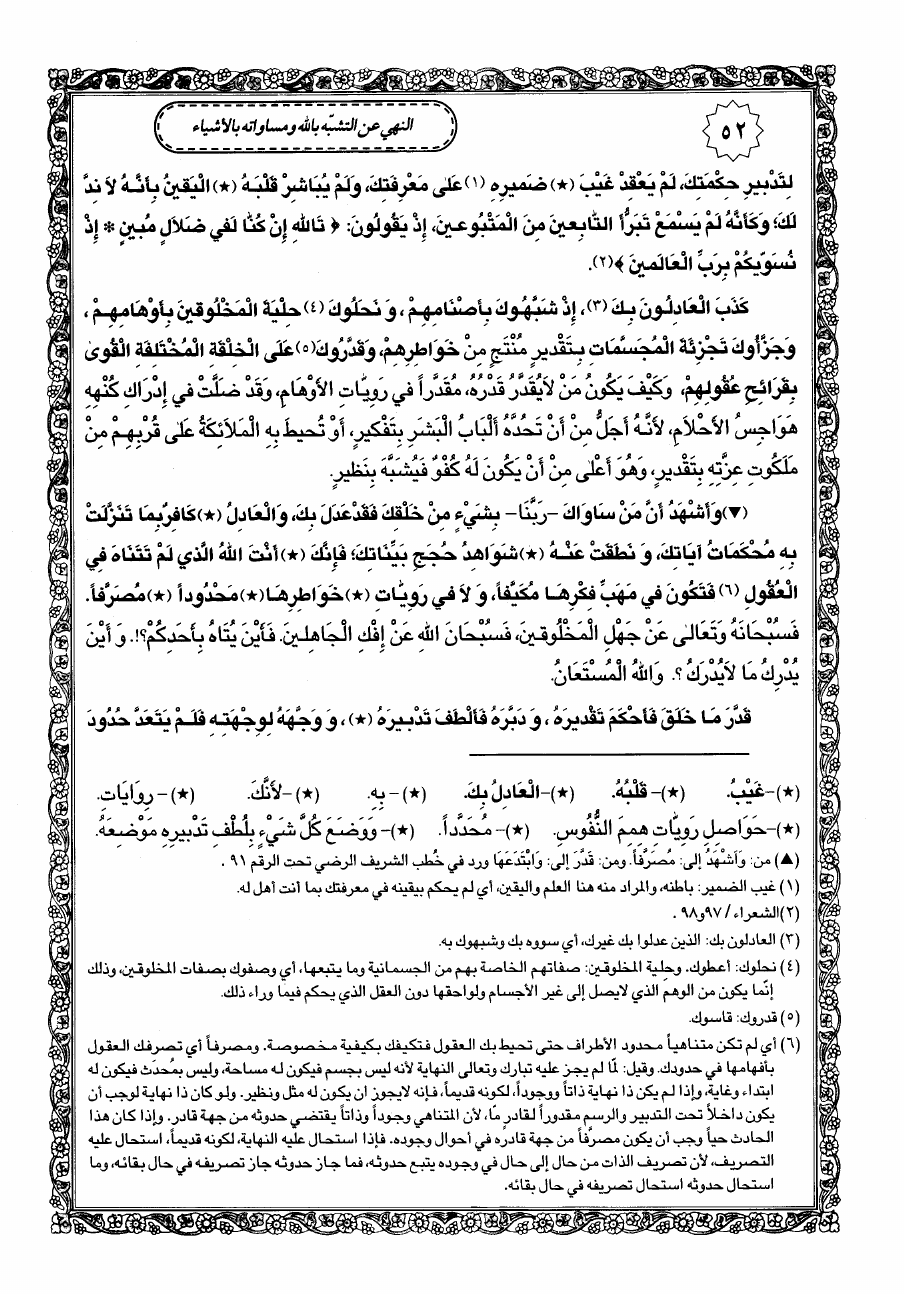 ٥٢
النهي عن التشبّه بالله ومساواته بالأشياء
لِتَدْبيرِ حِكْمَتِكَ، لَمْ يَعْقِدْ غَيْبَ (★) ضَميرِهِ (١) عَلىٰ مَعْرِفَتِكَ، وَلَمْ يُبَاشِرْ قَلْبَهُ (★) الْيَقينُ بِأَنَّهُ لاَ نِدَّ
لَكَ؛ وَكَأَنَّهُ لَمْ يَسْمَعْ تَبَرُّأَ التَّابِعينَ مِنَ الْمَتْبُوعينَ، إِذْ يَقُولُونَ: ﴿ تَاللهِ إِنْ كُنَّا لَفي ضَلاَلٍ مُبينٍ * إِذْ
نُسَوّيكُمْ بِرَبِّ الْعَالَمينَ ﴾(٢).
كَذَبَ الْعَادِلُونَ بِكَ (٣)، إِذْ شَبَّهُوكَ بِأَصْنَامِهِمْ، وَ نَحَلُوكَ (٤) حِلْيَةَ الْمَخْلُوقينَ بِأَوْهَامِهِمْ،
وَجَزَّأُوكَ تَجْزِئَةَ الْمُجَسَّمَاتِ بِتَقْديرٍ مُنْتَجٍ مِنْ خَوَاطِرِهِمْ، وَقَدَّرُوكَ(٥) عَلَى الْخِلْقَةِ الْمُخْتَلِفَةِ الْقُوىٰ
بِقَرَائِحِ عُقُولِهِمْ، وَكَيْفَ يَكُونُ مَنْ لاَيُقَدَّرُ قَدْرُهُ، مُقَدَّراً في رَوِيَّاتِ الأَوْهَامِ، وَقَدْ ضَلَّتْ في إِدْرَاكِ كُنْهِهِ
هَوَاجِسُ الأَحْلاَمِ، لأَنَّهُ أَجَلُّ مِنْ أَنْ تَحُدَّهُ أَلْبَابُ الْبَشَرِ بِتَفْكيرٍ، أَوْ تُحيطَ بِهِ الْمَلاَئِكَةُ عَلىٰ قُرْبِهِمْ مِنْ
مَلَكُوتِ عِزَّتِهِ بِتَقْديرٍ، وَهُوَ أَعْلىٰ مِنْ أَنْ يَكُونَ لَهُ كُفْوٌ فَيُشَبَّهَ بِنَظيرٍ.
(▼) وَأَشْهَدُ أَنَّ مَنْ سَاوَاكَ -رَبَّنَا- بِشَيْءٍ مِنْ خَلْقِكَ فَقَدْ عَدَلَ بِكَ، وَالْعَادِلُ (★) كَافِرٌ بِمَا تَنَزَّلَتْ
بِهِ مُحْكَمَاتُ آيَاتِكَ، وَ نَطَقَتْ عَنْهُ (★) شَوَاهِدُ حُجَجِ بَيِّنَاتِكَ؛ فَإِنَّكَ (★) أَنْتَ اللهُ الَّذي لَمْ تَتَنَاهَ فِي
الْعُقُولِ (٦) فَتَكُونَ في مَهَبِّ فِكْرِهَا مُكَيَّفاً، وَ لاَ في رَوِيَّاتِ (★) خَوَاطِرِهَا(★) مَحْدُوداً (★) مُصَرَّفاً.
فَسُبْحَانَهُ وَتَعَالىٰ عَنْ جَهْلِ الْمَخْلُوقينَ، فَسُبْحَانَ اللهِ عَنْ إِفْكِ الْجَاهِلينَ. فَأَيْنَ يُتَاهُ بِأَحَدِكُمْ؟!. وَ أَيْنَ
يُدْرِكُ مَا لاَيُدْرَكُ ؟. وَاللهُ الْمُسْتَعَانُ.
قَدَّرَ مَا خَلَقَ فَأَحْكَمَ تَقْديرَهُ، وَ دَبَّرَهُ فَأَلْطَفَ تَدْبيرَهُ (★)، وَ وَجَّهَهُ لِوِجْهَتِهِ فَلَمْ يَتَعَدَّ حُدُودَ
(★)-غَيْبُ. (★)- قَلْبُهُ. (★)-الْعَادِلُ بِكَ. (★)- بِهِ. (★)-لأَنَّكَ. (★)- رِوَايَاتِ.
(★)-حَوَاصِلِ رَوِيَّاتِ هِمَمِ النُّفُوسِ. (★)- مُحَدَّداً. (★)- وَوَضَعَ كُلَّ شَيْءٍ بِلُطْفِ تَدْبيرِهِ مَوْضِعَهُ.
(▲) من: وَأَشْهَدُ إلى: مُصَرَّفاً. ومن: قَدَّرَ إلى: وَابْتَدَعَهَا ورد في خُطب الشريف الرضي تحت الرقم ٩١ .
(١) غيب الضمير: باطنه، والمراد منه هنا العلم واليقين، أي لم يحكم بيقينه في معرفتك بما أنت أهل له.
(٢)الشعراء / ٩٧و٩٨ .
(٣) العادلون بك: الذين عدلوا بك غيرك، أي سووه بك وشبهوك به.
(٤) نحلوك: أعطوك. وحلية المخلوقين: صفاتهم الخاصة بهم من الجسمانية وما يتبعها، أي وصفوك بصفات المخلوقين، وذلك
إنّما يكون من الوهم الذي لايصل إلى غير الأجسام ولواحقها دون العقل الذي يحكم فيما وراء ذلك.
(٥) قدروك: قاسوك.
(٦) أي لم تكن متناهياً محدود الأطراف حتى تحيط بك العقول فتكيفك بكيفية مخصوصة. ومصرفاً أي تصرفك العقول
بأفهامها في حدودك. وقيل: لمّا لم يجز عليه تبارك وتعالى النهاية لأنه ليس بجسم فيكون له مساحة، وليس بمُحدَث فيكون له
ابتداء وغاية، وإذا لم يكن ذا نهاية ذاتاً ووجوداً، لكونه قديماً، فإنه لايجوز ان يكون له مثل ونظير. ولو كان ذا نهاية لوجب أن
يكون داخلاً تحت التدبير والرسم مقدوراً لقادرٍ مّا، لأن المتناهي وجوداً وذاتاً يقتضي حدوثه من جهة قادر. وإذا كان هذا
الحادث حياً وجب أن يكون مصرّفاً من جهة قادره في أحوال وجوده. فإذا استحال عليه النهاية، لكونه قديماً، استحال عليه
التصريف، لأن تصريف الذات من حال إلى حال في وجوده يتبع حدوثه، فما جاز حدوثه جاز تصريفه في حال بقائه، وما
استحال حدوثه استحال تصريفه في حال بقائه.